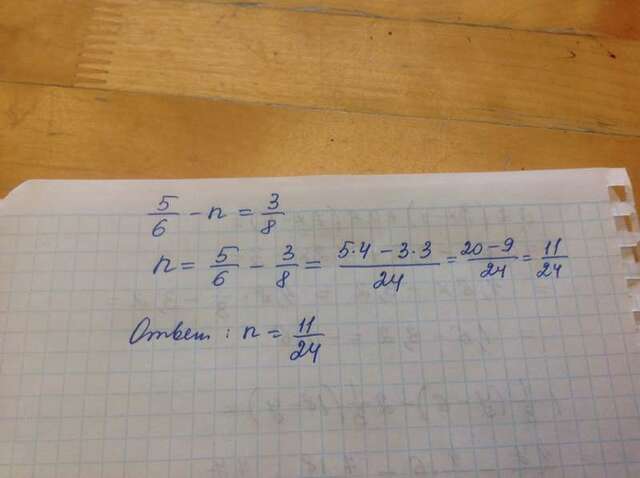 5/6 - n = 3/8
n = 5/6 - 3/8 = (5·4 - 3·3)/24 = (20-9)/24 = 11/24
Ответ: n = 11/24